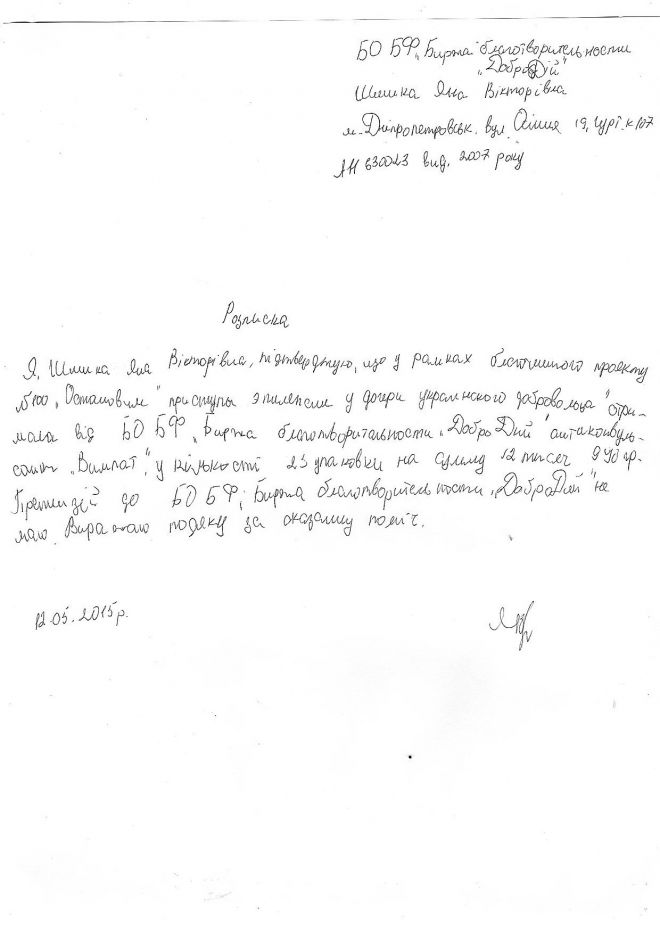 БО БФ „Биржа благотворительности
„ДоброДій"
Шишка Яна Вікторівна
м. Дніпропетровськ, вул. 19, гурт. к 107
АН 630023 вид. 2007 року
Розписка
Я, Шишка Яна Вікторівна, підтверджую, що у рамках благочинного проекту
№100 „Остановим приступы эпилепсии у дочери украинского добровольца" отри-
мала від БО БФ „Биржа благотворительности „ДоброДий" антиконвуль-
сант „Вимпат", у кількості 23 упаковки на суму 12 тисеч 940 гр.
Претензій до БО БФ „Биржа благотворительности „ДоброДий" не
маю. Виражаю подяку за оказану поміч.
12.05.2015р.